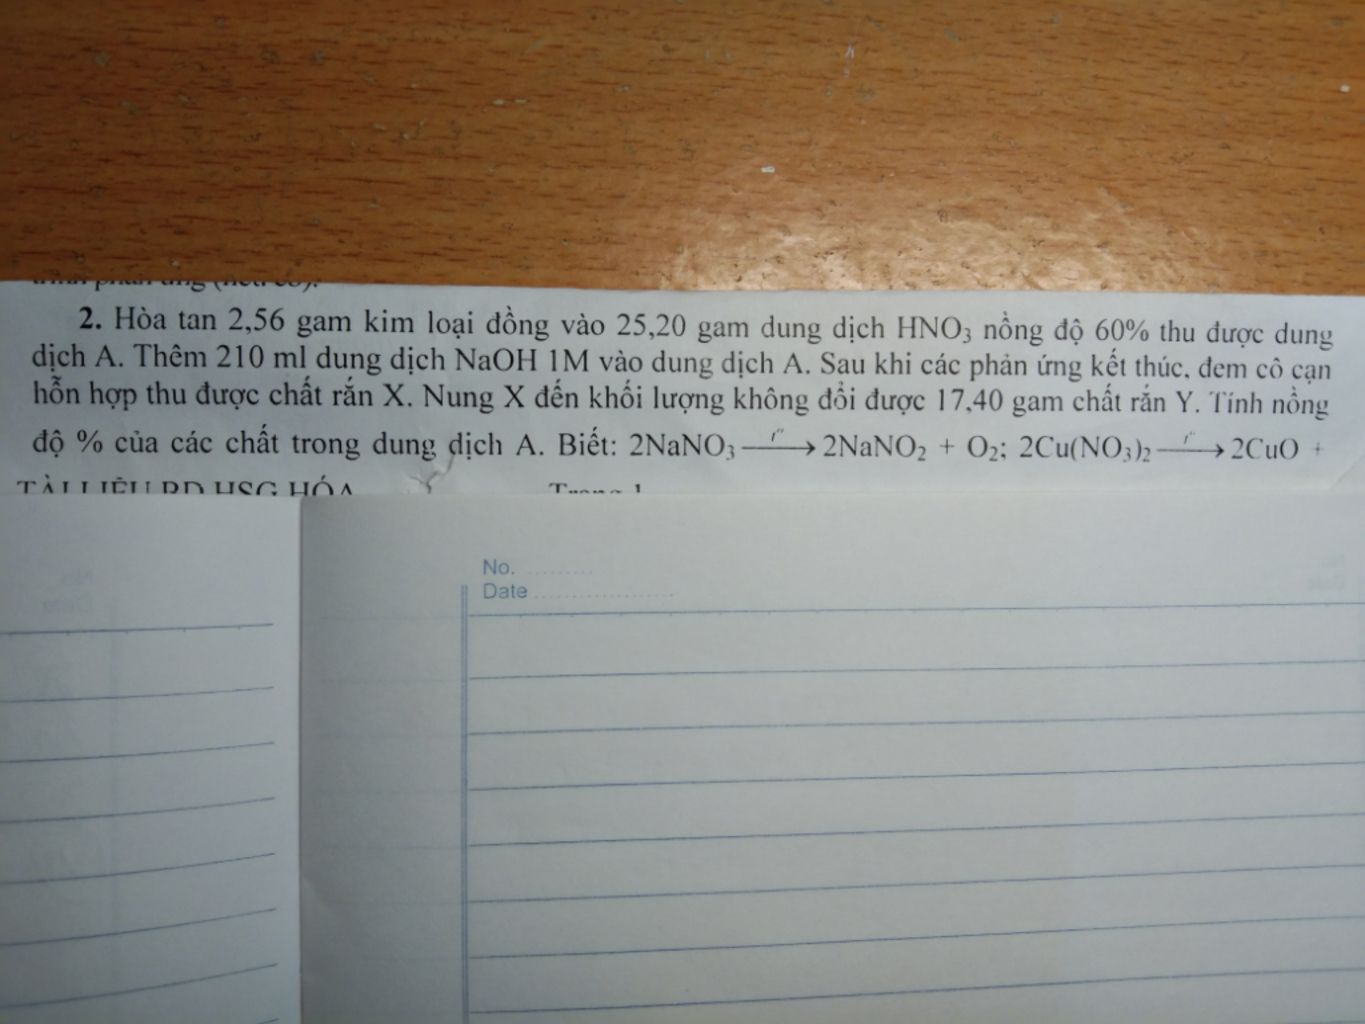 2. Hòa tan 2,56 gam kim loại đồng vào 25,20 gam dung dịch HNO₃ nồng độ 60% thu được dung
dịch A. Thêm 210 ml dung dịch NaOH 1M vào dung dịch A. Sau khi các phản ứng kết thúc, đem cô cạn
hỗn hợp thu được chất rắn X. Nung X đến khối lượng không đổi được 17,40 gam chất rắn Y. Tính nồng
độ % của các chất trong dung dịch A. Biết: 2NaNO₃ —t°→ 2NaNO₂ + O₂; 2Cu(NO₃)₂ —t°→ 2CuO +
TÀI LIỆU BD HSG HÓA Trang 1
No. ..........
Date ....................